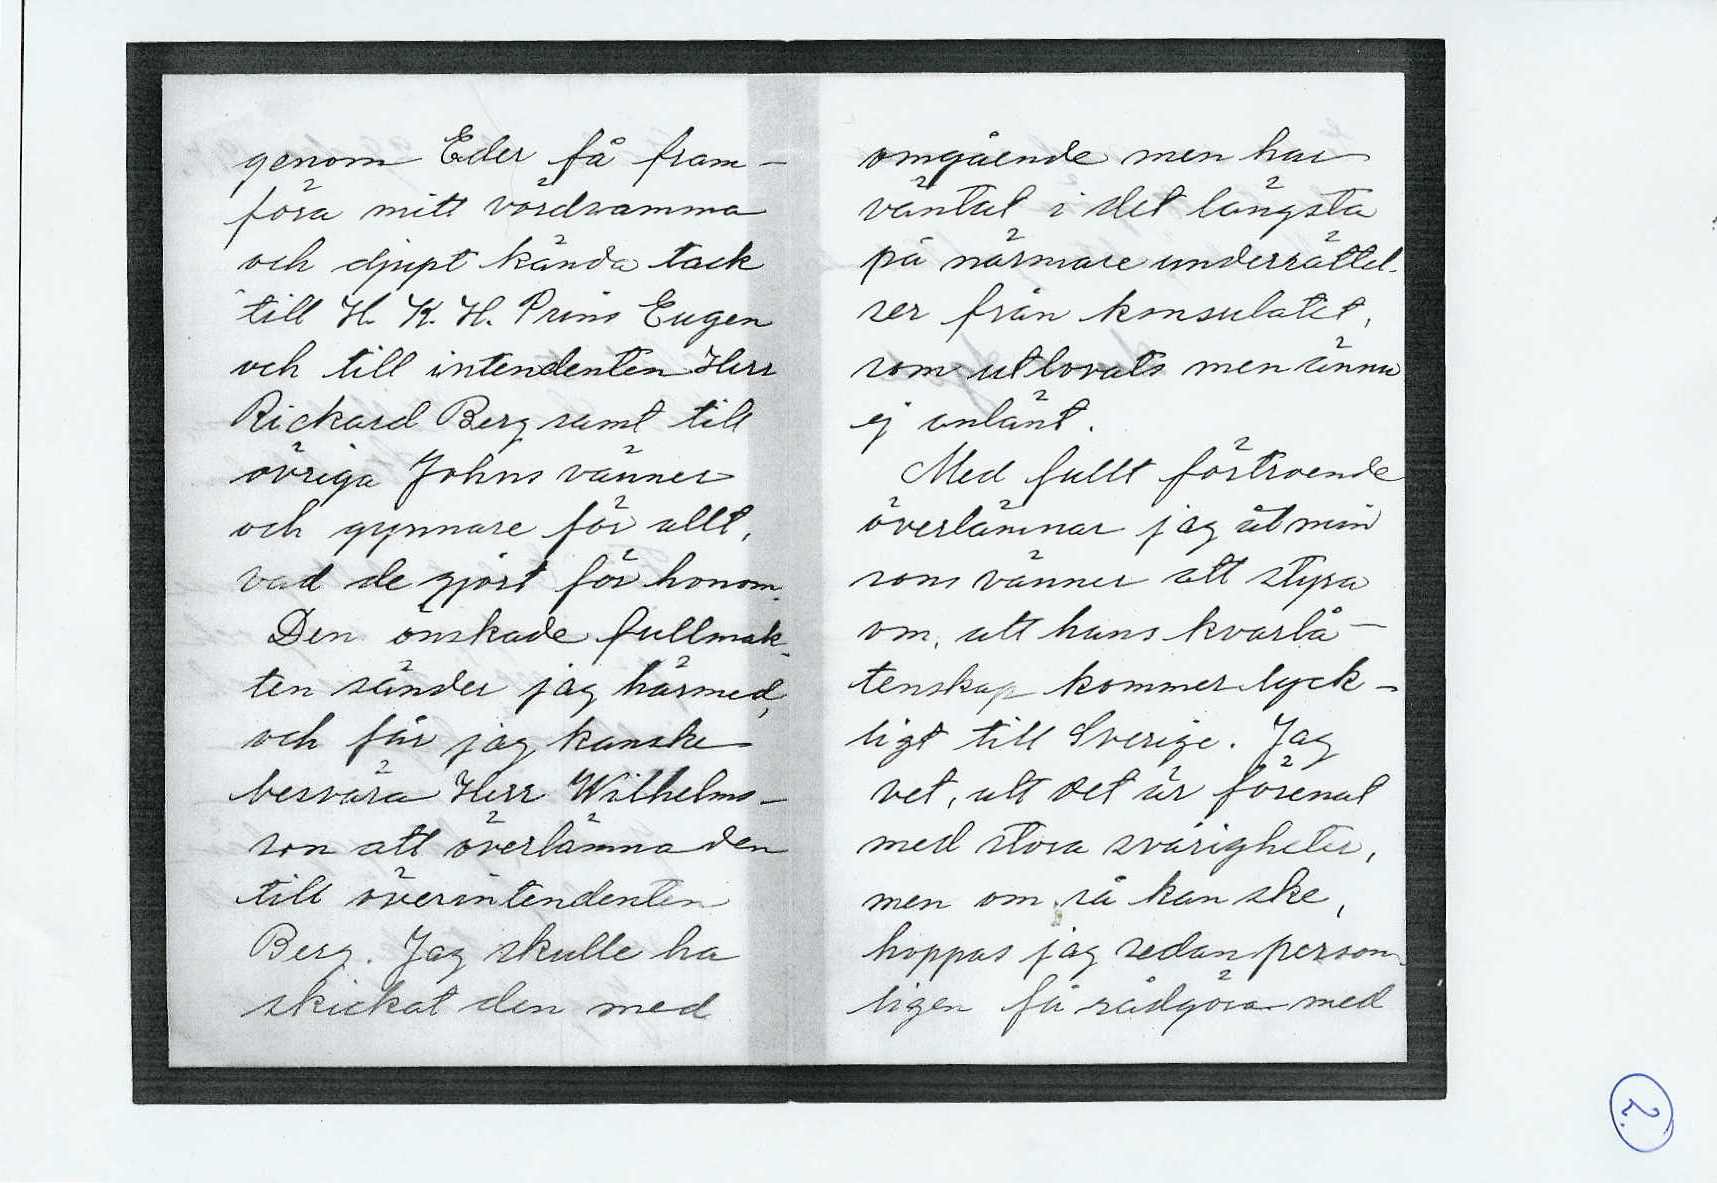 genom Eder få fram-
föra mitt vördsamma
och djupt kända tack
till H. K. H. Prins Eugen
och till intendenten Herr
Rickard Berg samt till
övriga Johns vänner
och gynnare för allt,
vad de gjort för honom.
Den önskade fullmak-
ten sänder jag härmed,
och får jag kanske
besvära Herr Wilhelms-
son att överlämna den
till överintendenten
Berg. Jag skulle ha
skickat den med
omgående men har
väntat i det längsta
på närmare underrättel-
ser från konsulatet,
som utlovats men ännu
ej anlänt.
Med fullt förtroende
överlämnar jag åt min
sons vänner att styra
om, att hans kvarlå-
tenskap kommer lyck-
ligt till Sverige. Jag
vet, att det är förenat
med stora svårigheter,
men om så kan ske,
hoppas jag sedan person-
ligen få rådgöra med
2.